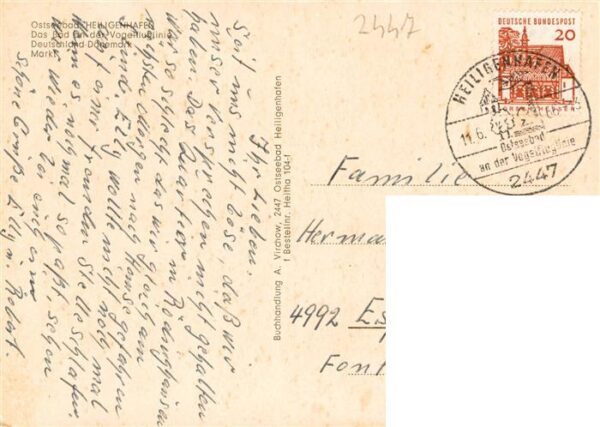 Ostseebad HEILIGENHAFEN
Das Bad an der Vogelfluglinie
Deutschland-Dänemark
Markt
Ihr Lieben.
Seid uns nicht böse, daß wir
unser Versprechen nicht gehalten
haben. Das Quartier in
war so schlecht das wir gleich am
nächsten Morgen nach Hause gefahren
sind. Elly wollte nicht noch mal
auf einer fremden Stelle schlafen.
Wenn es noch mal so paßt, sehen
wir wieder zu euch
Schöne Grüße Elly u. Robert.
Buchhandlung A. Virchow, 2447 Ostseebad Heiligenhafen
f Bestellnr. Heitha 104-1
2447
DEUTSCHE BUNDESPOST
20
HEILIGENHAFEN
11.6.
Ostseebad
an der Vogelfluglinie
2447
Familie
Herma
4992 Es
Fon